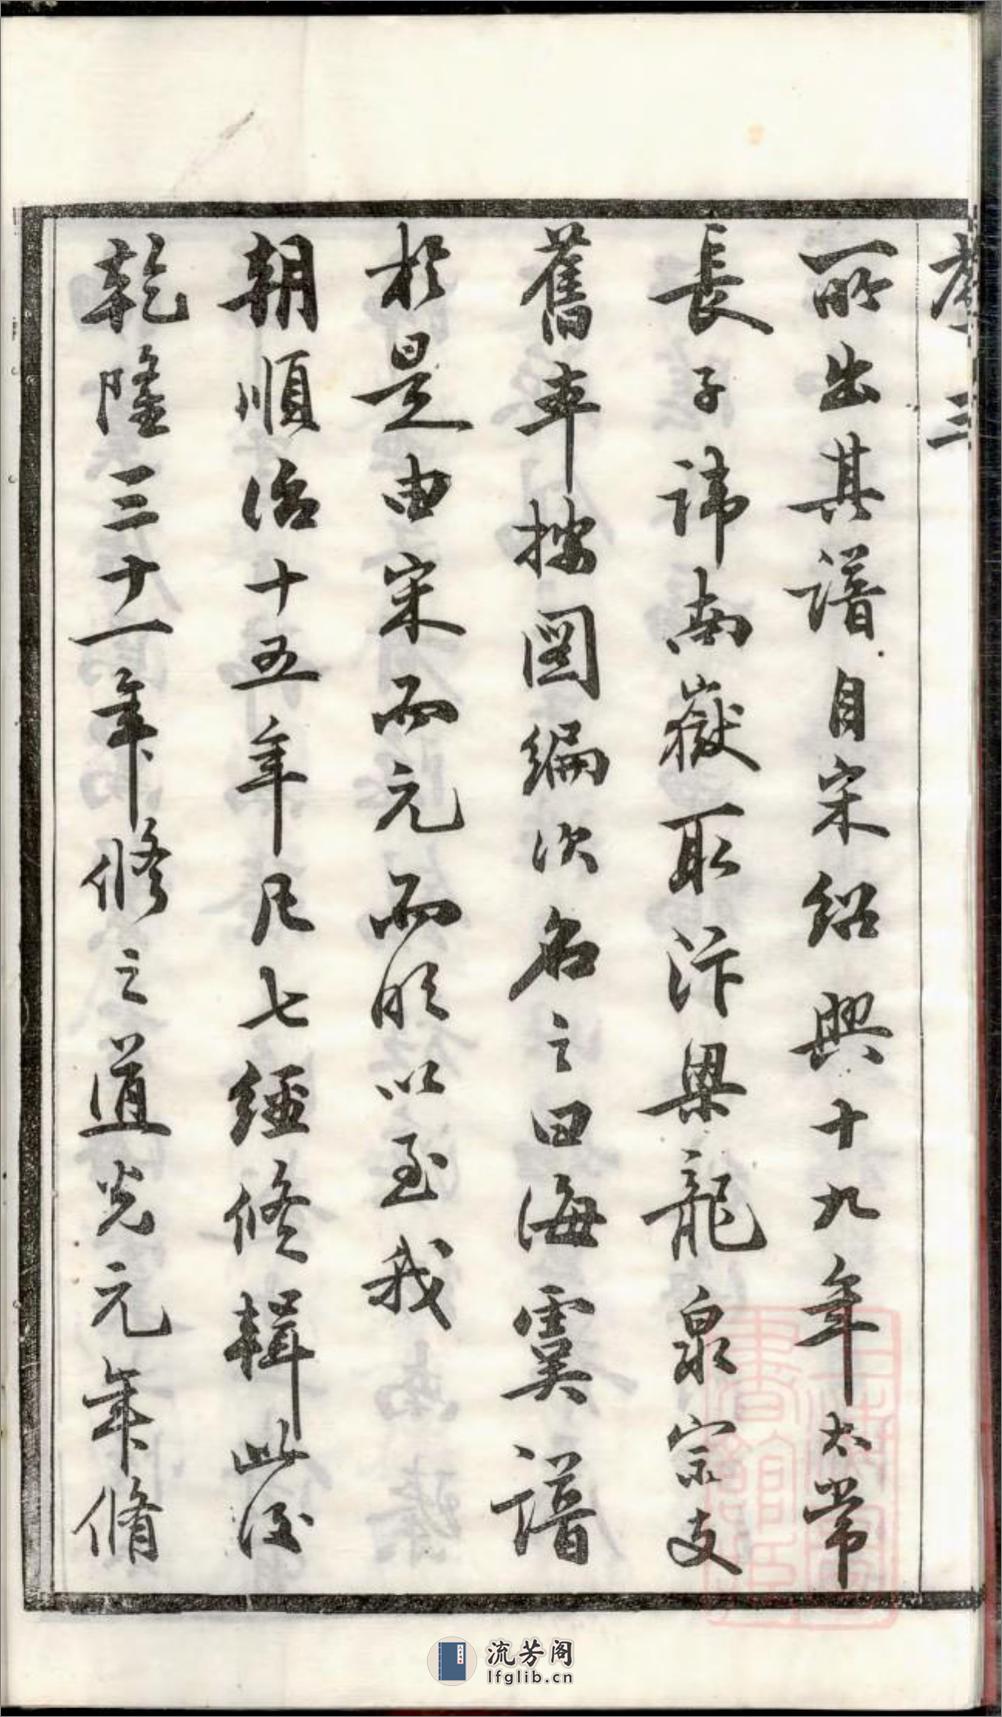 所出其譜自宋紹興十九年太常
長子諱南嶽取汴梁龍泉宗支
舊本按圖編次名之曰海虞譜
於是由宋而元而明以至我
朝順治十五年凡七經修輯此後
乾隆三十一年修之道光元年修
流芳阁
lfglib.cn